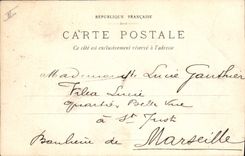 RÉPUBLIQUE FRANÇAISE
CARTE POSTALE
Ce côté est exclusivement réservé à l'adresse
Mademoiselle Lucie Gauthier
Villa Lucie
Quartier Belle Vue
à St Just
Banlieue de Marseille